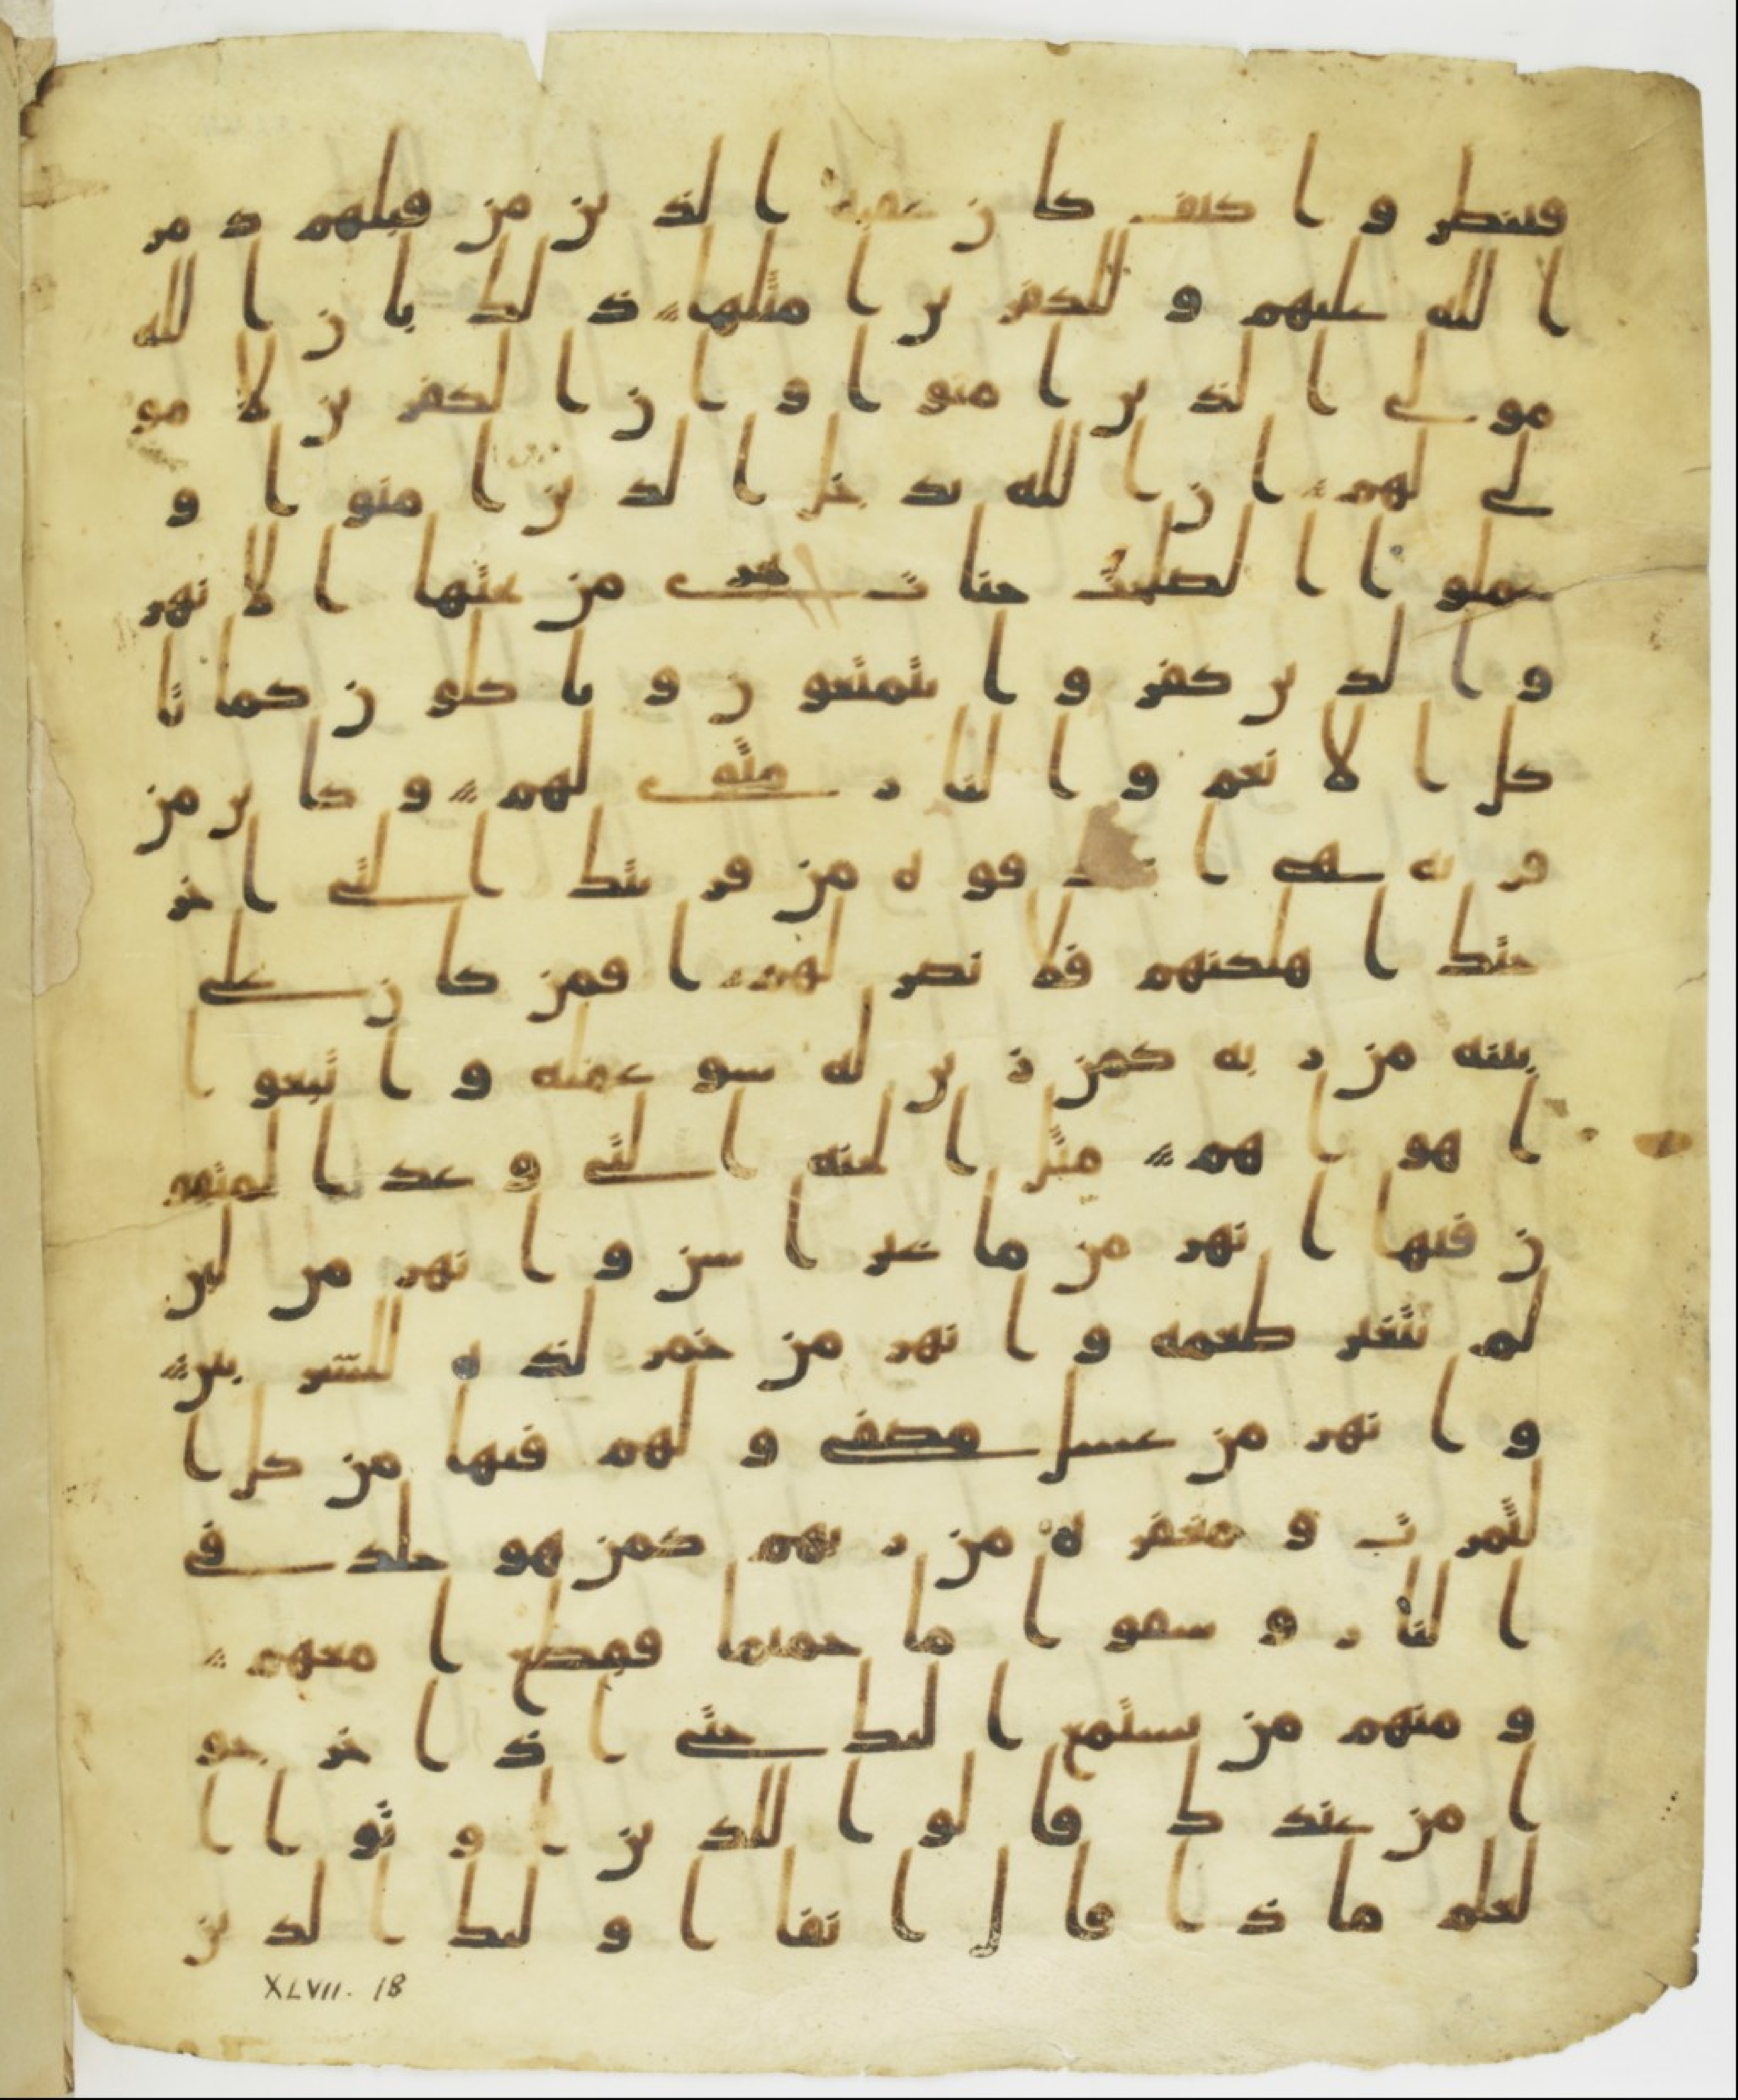 فينظر وا كيف كان عقبه الذين من قبلهم د مر
ا لله عليهم و للكفر ين ا مثلها ذ لك با ن ا لله
مو لى ا لذ ين ا منو ا و ا ن ا لكفر ين لا مو
لى لهم ا ن ا لله يد خل ا لذ ين ا منو ا و
عملو ا ا لصلحت جنا ت تجري من تحتها ا لا نهر
و ا لذ ين كفر و ا يتمتعو ن و يا كلو ن كما تا
كل ا لا نعم و ا لنا ر مثوى لهم و كا ين من
قر يه هي ا شد قو ه من قر يتك ا لتي ا خر
جتك ا هلكنهم فلا نصر لهم ا فمن كا ن على
بينه من ر به كمن ز ين له سو عمله و ا تبعو ا
ا هو ا هم مثل ا لجنه ا لتي و عد ا لمتقو
ن فيها ا نهر من ما غير ا سن و ا نهر من لبن
لم يتغير طعمه و ا نهر من خمر لذ ه للشر بين
و ا نهر من عسل مصفى و لهم فيها من كل ا
لثمر ت و مغفر ه من ر بهم كمن هو خلد في
ا لنا ر و سقو ا ما حميما فقطع ا معهم
و منهم من يستمع ا ليك حتى ا ذ ا خر جو
ا من عند ك قا لو ا للذ ين ا و تو ا ا
لعلم ما ذ ا قا ل ا نفا ا و لئك ا لذ ين
XLVII. 18